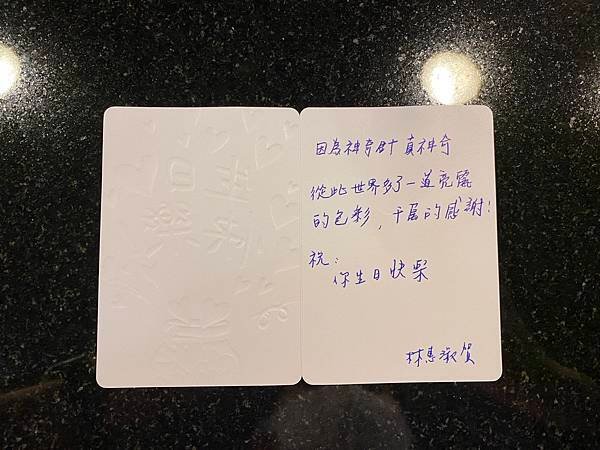 因為神奇時真神奇
從此世界多了一道亮麗
的色彩，千萬的感謝！
祝：
你生日快樂
林惠淑賀